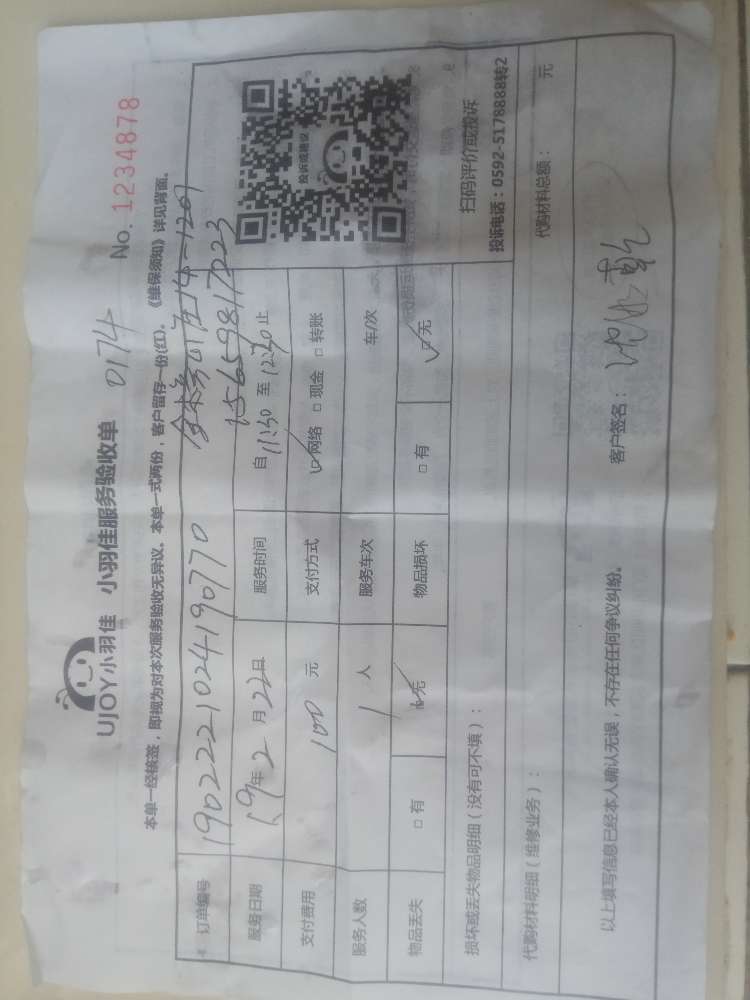 UJOY小羽佳 小羽佳服务验收单 0174 No. 1234878
本单一经核签，即视为对本次服务验收无异议。本单一式两份，客户留存一份(红)。《维保须知》详见背面。
订单编号 190222102419 0770
15659817223
服务日期 19年 2 月 22日 服务时间 自 11:30 至 12:30 止
支付费用 100 元 支付方式 网络 □ 现金 □ 转账
服务人数 1 人 服务车次 车/次
物品丢失 □ 有 无 物品损坏 □ 有 □ 无
投诉或建议
扫码评价或投诉
投诉电话：0592-5178888转2
损坏或丢失物品明细（没有可不填）：
代购材料明细（维修业务）： 代购材料总额： 元
以上填写信息已经本人确认无误，不存在任何争议纠纷。 客户签名：